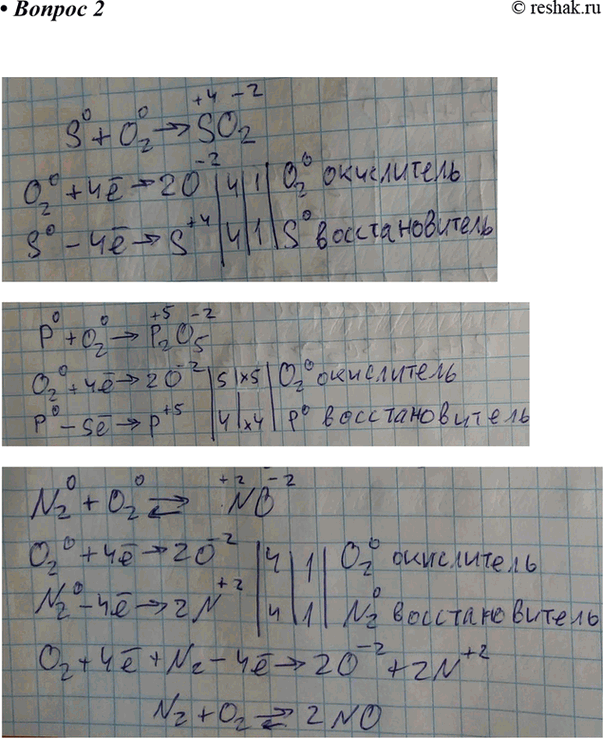 • Вопрос 2
© reshak.ru
S⁰ + O₂⁰ → S⁺⁴O₂⁻²
O₂⁰ + 4ē → 2O⁻² | 4 | 1 | O₂⁰ окислитель
S⁰ – 4ē → S⁺⁴ | 4 | 1 | S⁰ восстановитель
P⁰ + O₂⁰ → P₂⁺⁵O₅⁻²
O₂⁰ + 4ē → 2O⁻² | 5 | ×5 | O₂⁰ окислитель
P⁰ – 5ē → P⁺⁵ | 4 | ×4 | P⁰ восстановитель
N₂⁰ + O₂⁰ ⇄ N⁺²O⁻²
O₂⁰ + 4ē → 2O⁻² | 4 | 1 | O₂⁰ окислитель
N₂⁰ – 4ē → 2N⁺² | 4 | 1 | N₂⁰ восстановитель
O₂ + 4ē + N₂ – 4ē → 2O⁻² + 2N⁺²
N₂ + O₂ ⇄ 2NO